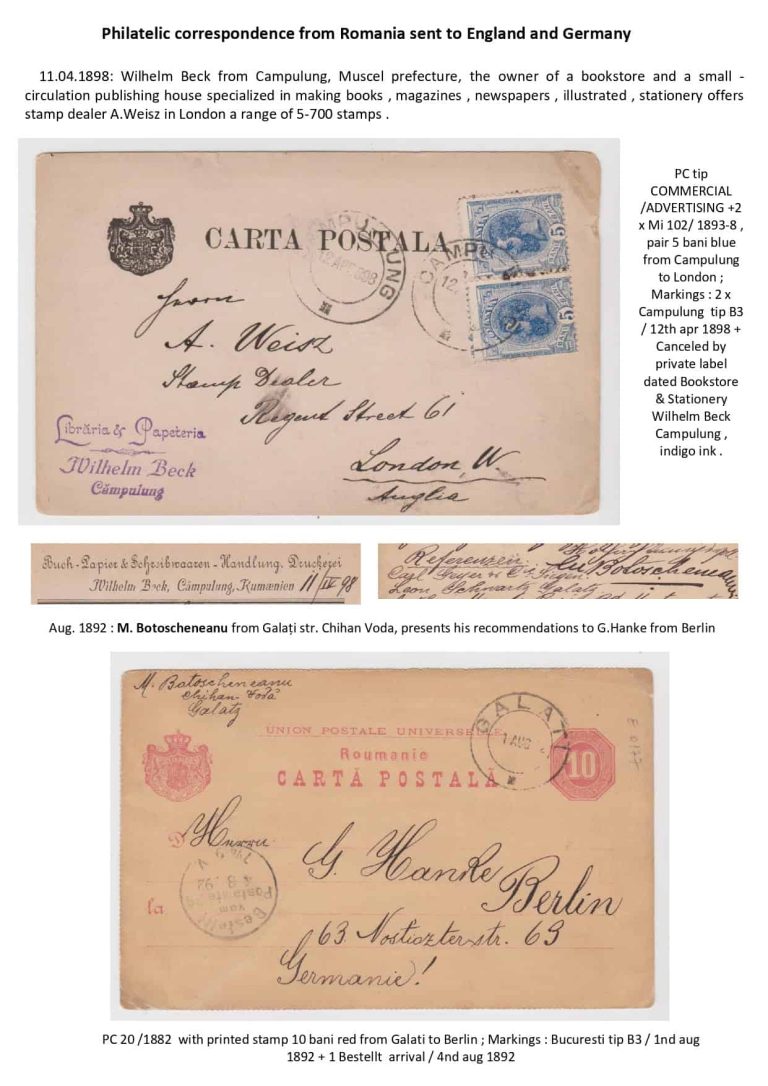 Philatelic correspondence from Romania sent to England and Germany
11.04.1898: Wilhelm Beck from Campulung, Muscel prefecture, the owner of a bookstore and a small -
circulation publishing house specialized in making books , magazines , newspapers , illustrated , stationery offers
stamp dealer A.Weisz in London a range of 5-700 stamps .
CARTA POSTALA
CAMPULUNG
12 APR 98
CAMPU
12
5 BANI
5 BANI
Herrn
A. Weisz
Stamp Dealer
Regent Street 61
London, W.
Anglia
Librăria & Papeteria
Wilhelm Beck
Câmpulung
PC tip
COMMERCIAL
/ADVERTISING +2
x Mi 102/ 1893-8 ,
pair 5 bani blue
from Campulung
to London ;
Markings : 2 x
Campulung tip B3
/ 12th apr 1898 +
Canceled by
private label
dated Bookstore
& Stationery
Wilhelm Beck
Campulung ,
indigo ink .
Buch-Papier & Schreibwaaren-Handlung, Druckerei
Wilhelm Beck, Câmpulung, Rumænien 11/IV 98
Referenzen
Botoscheneanu
Leon Schwartz Galatz
Aug. 1892 : M. Botoscheneanu from Galați str. Chihan Voda, presents his recommendations to G.Hanke from Berlin
M. Botoscheneanu
Chihan Vodă
Galatz
UNION POSTALE UNIVERSELLE
Roumanie
CARTĂ POSTALĂ
GALATI
1 AUG
10
D
Herrn
G. Hanke
Berlin
la
Bestellt
vom
Postamte
4 8 92
63 Nostizterstr. 63
Germanie!
PC 20 /1882 with printed stamp 10 bani red from Galati to Berlin ; Markings : Bucuresti tip B3 / 1nd aug
1892 + 1 Bestellt arrival / 4nd aug 1892